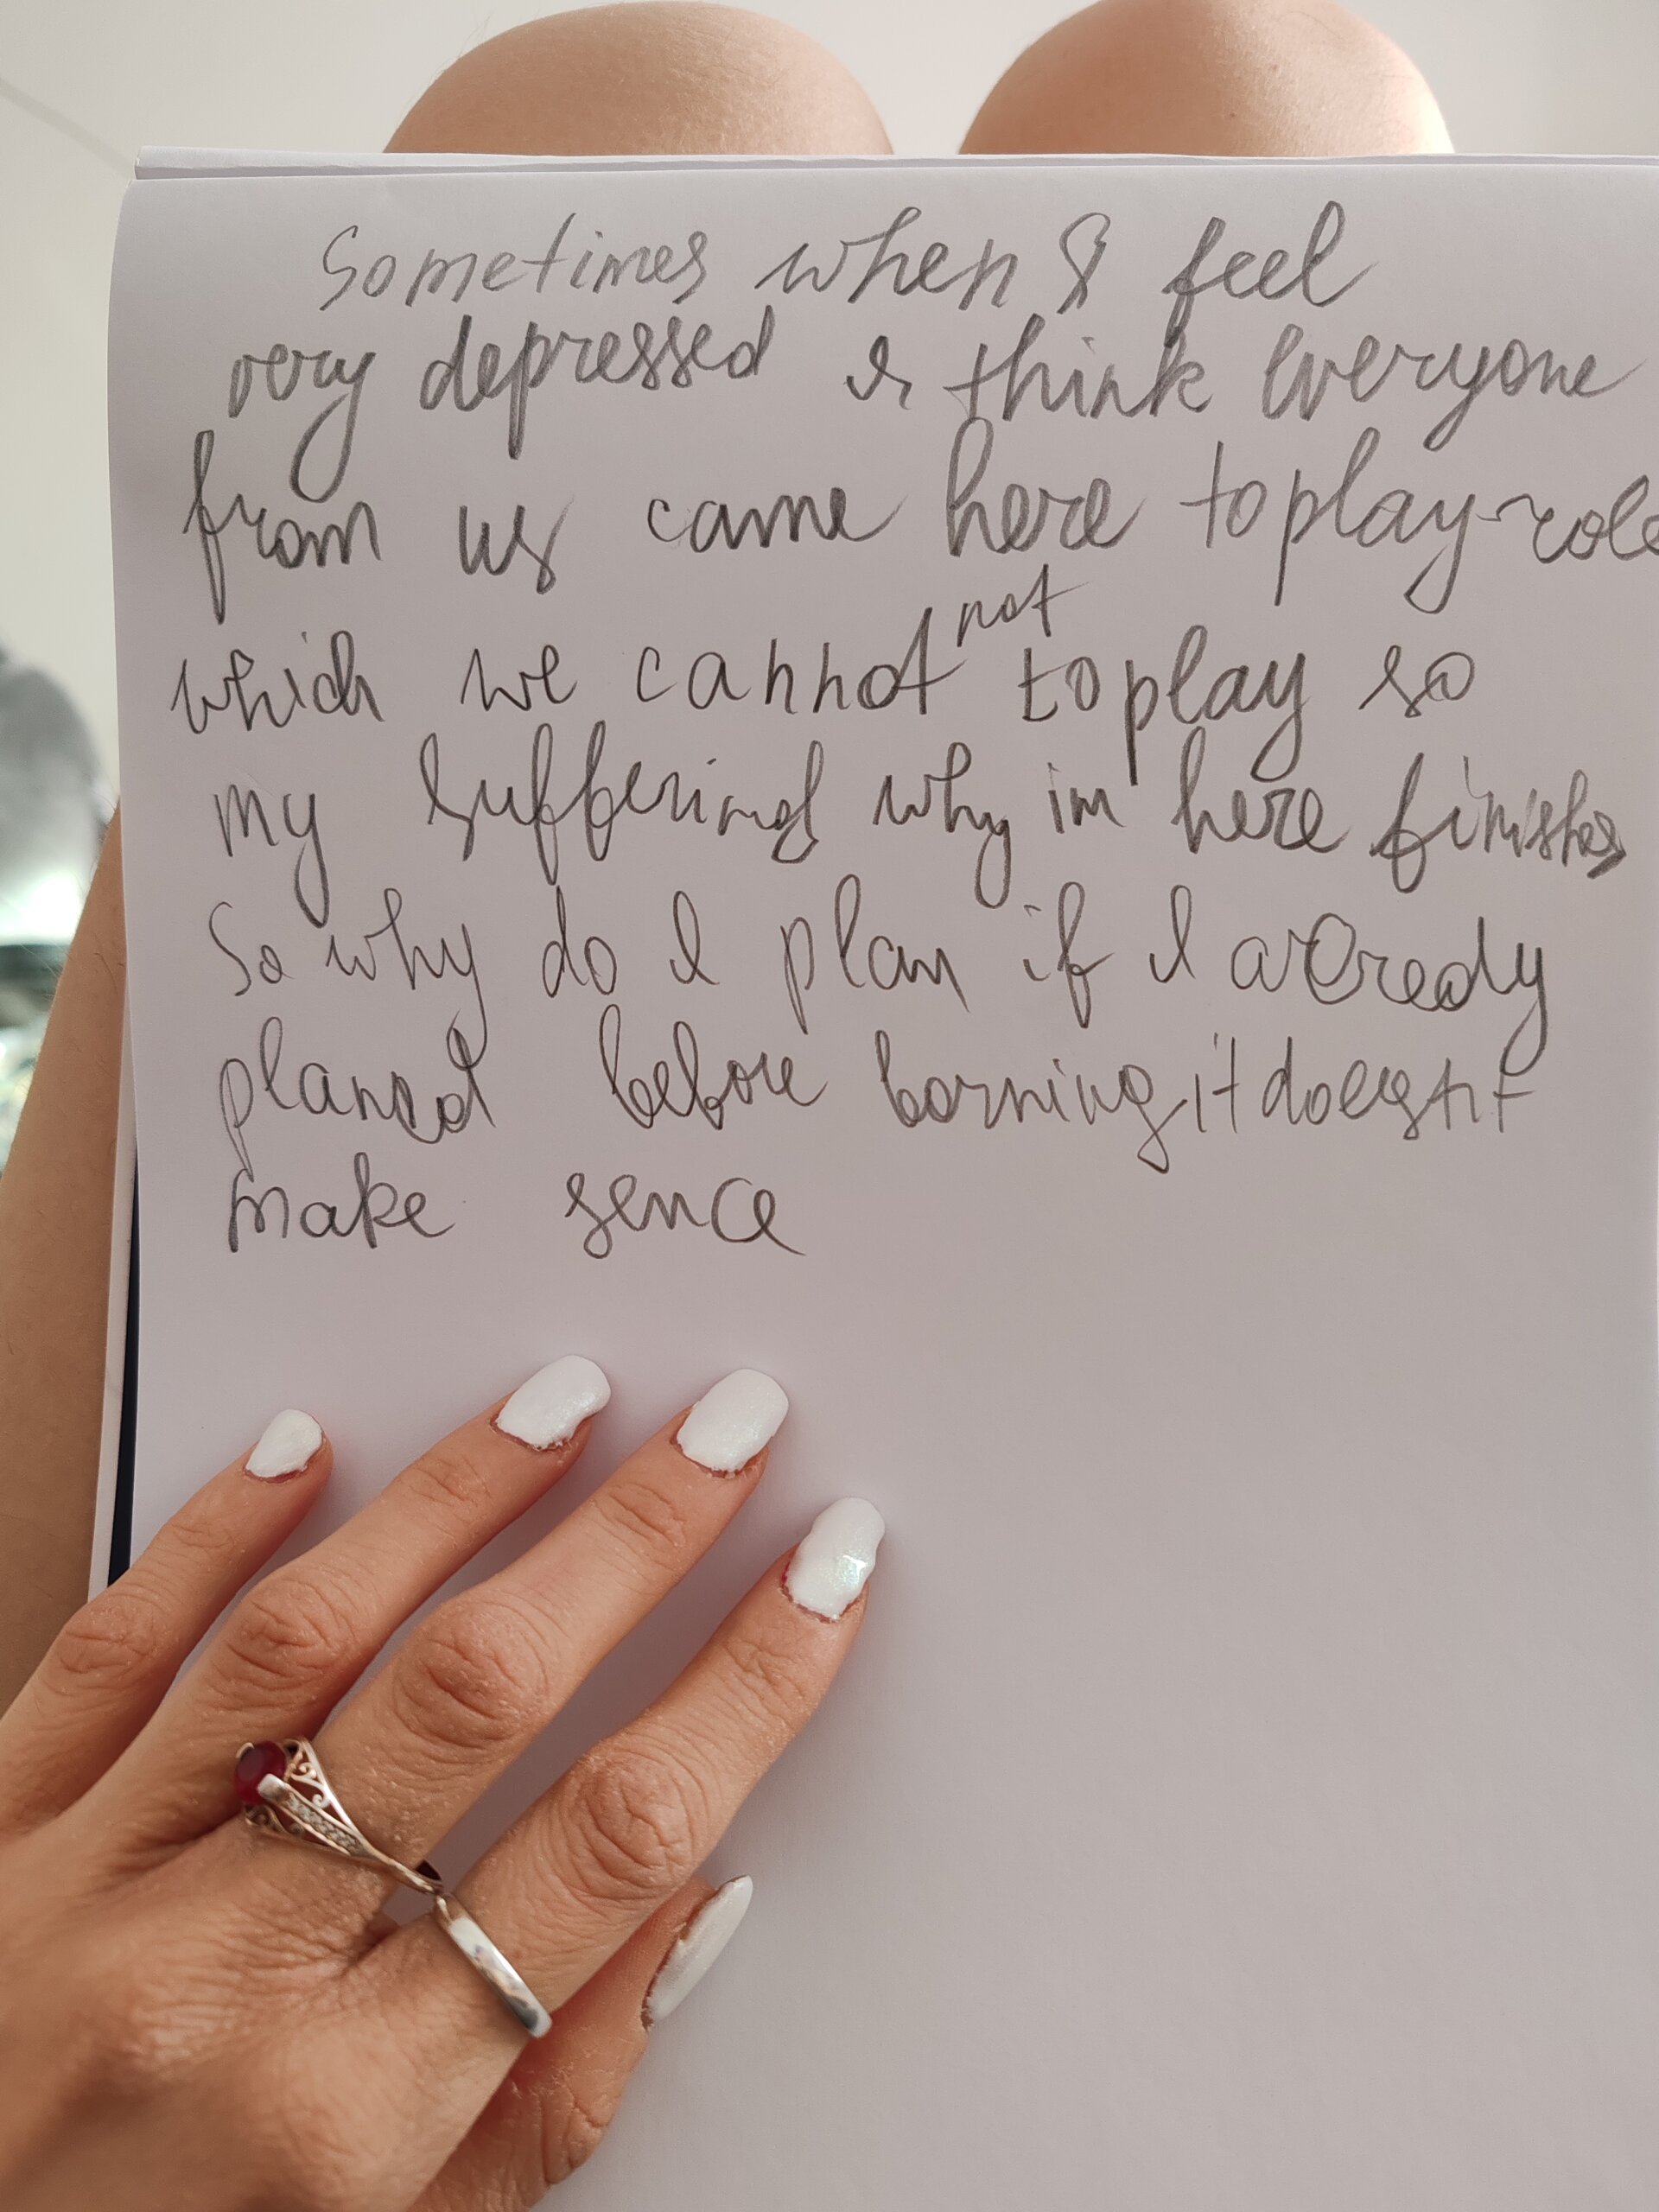 Sometimes when I feel
very depressed I think everyone
from us came here to play role
which we cannot not to play so
my suffering why im here finishes
So why do I plan if I already
planed before borning, it doesn't
make sence